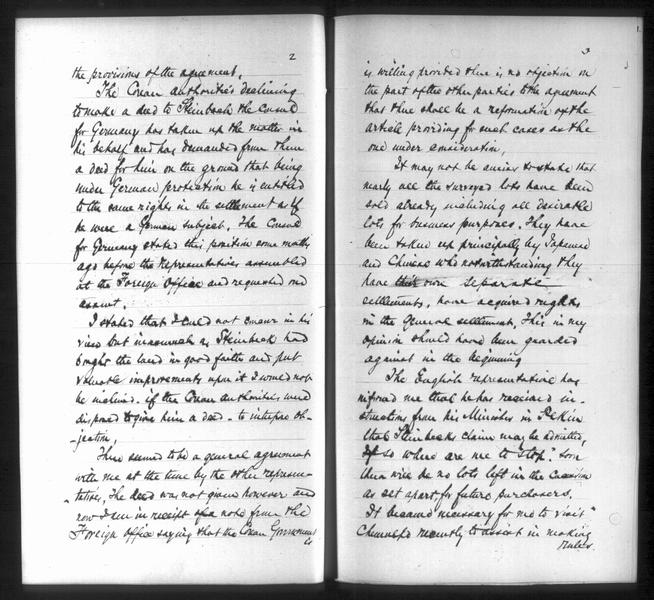 2
the provisions of the agreement.
The Corean authorities declining
to make a deed to Steinbeck the Consul
for Germany has taken up the matter in
his behalf and has demanded from them
a deed for him on the ground that being
under German protection he is entitled
to the same rights in the settlement as if
he were a German subject. The Consul
for Germany stated this position some months
ago before the Representatives assembled
at the Foreign Office and requested our
assent.
I stated that I could not concur in his
views but inasmuch as Steinbeck had
bought the land in good faith and put
valuable improvements upon it I would not
be inclined - if the Corean authorities were
disposed to give him a deed - to interpose ob-
-jection.
There seemed to be a general agreement
with me at the time by the other represen-
tatives. The deed was not given however and
now I am in receipt of a note from the
Foreign Office saying that the Corean Government
is
3
is willing provided there is no objection on
the part of the other parties to the agreement
that there shall be a reformation of the
article providing for such cases as the
one under consideration.
It may not be amiss to state that
nearly all the surveyed lots have been
sold already including all desirable
lots for business purposes. They have
been taken up principally by Japanese
and Chinese who notwithstanding they
have their own separate
settlements, have acquired rights
in the General settlement. This in my
opinion should have been guarded
against in the beginning
The English representative has
informed me that he has received in-
structions from his Minister in Pekin
that Steinbecks claim may be admitted,
"If so where are we to stop". Soon
there will be no lots left in the
as set apart for future purchasers.
It became necessary for me to visit
Chemulpo recently to assist in making
rules.
1